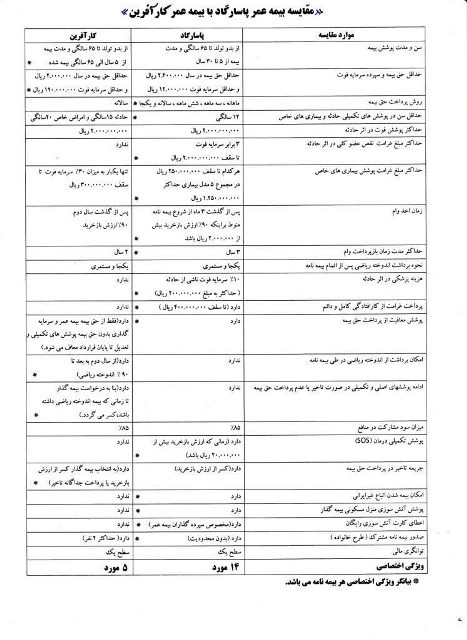 «مقایسه بیمه عمر پاسارگاد با بیمه عمر کارآفرین»
موارد مقایسه پاسارگاد کارآفرین
سن و مدت پوشش بیمه از بدو تولد تا ۶۵ سالگی و مدت از بدو تولد تا ۶۵ سالگی و مدت بیمه
بیمه از ۵ تا ۳۰ سال از ۵ سال الی ۶۵ سالگی بیمه شده *
حداقل حق بیمه و سپرده سرمایه فوت حداقل حق بیمه در سال ۲,۴۰۰,۰۰۰ ریال حداقل حق بیمه در سال ۲,۰۰۰,۰۰۰ ریال
و حداقل سرمایه فوت ۱۲,۰۰۰,۰۰۰ ریال * و حداقل سرمایه فوت ۱۲۰,۰۰۰,۰۰۰ ریال *
روش پرداخت حق بیمه ماهانه ، سه ماهه ، شش ماهه ، سالانه و یکجا * سالانه
حداقل سن در پوششهای تکمیلی حادثه و بیماری های خاص ۱۲ سالگی * حادثه ۱۵سالگی و امراض خاص ۲۰سالگی
حداکثر پوشش فوت در اثر حادثه ۲,۰۰۰,۰۰۰,۰۰۰ ریال ۲,۰۰۰,۰۰۰,۰۰۰ ریال
حداکثر مبلغ غرامت نقص عضو کلی در اثر حادثه ۳ برابر سرمایه فوت ندارد
تا سقف ۲,۰۰۰,۰۰۰,۰۰۰ ریال *
حداکثر مبلغ غرامت پوشش بیماری های خاص هرکدام تا سقف ۲۵۰,۰۰۰,۰۰۰ ریال تنها یکبار به میزان ۳۰٪ سرمایه فوت تا
در مجموع ۵ مدل بیماری حداکثر سقف ۳۰۰,۰۰۰,۰۰۰ ریال
۱,۲۵۰,۰۰۰,۰۰۰ ریال *
زمان اخذ وام پس از گذشت ۳ ماه از شروع بیمه نامه پس از گذشت سال دوم
منوط براینکه ۹۰٪ ارزش بازخرید بیش ۹۰٪ ارزش بازخرید
از ۲,۰۰۰,۰۰۰ ریال باشد *
حداکثر مدت زمان بازپرداخت وام ۳ سال * ۲ سال
نحوه برداشت اندوخته ریاضی پس از اتمام بیمه نامه یکجا و مستمری یکجا و مستمری
هزینه پزشکی در اثر حادثه ۱۰٪ سرمایه فوت ناشی از حادثه ندارد
( حداکثر به مبلغ ۲۰۰,۰۰۰,۰۰۰ ریال) *
پرداخت غرامت از کارافتادگی کامل و دائم دارد (تا سقف ۴۰۰,۰۰۰,۰۰۰ ریال ) * ندارد
پوشش معافیت از پرداخت حق بیمه دارد * دارد(فقط از حق بیمه بیمه عمر و سرمایه
گذاری بدون حق بیمه پوشش های تکمیلی و
تعدیل تا پایان قرارداد معاف می شود.)
امکان برداشت از اندوخته ریاضی در طی بیمه نامه ندارد دارد(از سال دوم به بعد تا
۹۰٪ اندوخته ریاضی) *
ادامه پوششهای اصلی و تکمیلی در صورت تاخیر یا عدم پرداخت حق بیمه ندارد دارد(بنا به درخواست بیمه گذار
تا زمانی که بیمه اندوخته ریاضی داشته
باشد،کسر می گردد.) *
میزان سود مشارکت در منافع ۸۵٪ ۸۵٪
پوشش تکمیلی درمان (SOS) دارد (زمانی که ارزش بازخرید بیش از ندارد
۲۰,۰۰۰,۰۰۰ ریال باشد) *
جریمه تاخیر در پرداخت حق بیمه دارد (کسر از ارزش بازخرید) دارد(به انتخاب بیمه گذار کسر از ارزش
بازخرید یا پرداخت جداگانه تاخیر) *
امکان بیمه شدن اتباع غیرایرانی دارد * ندارد
پوشش آتش سوزی منزل مسکونی بیمه گذار دارد * ندارد
اعطای کارت آتش سوزی رایگان دارد(مخصوص سپرده گذاران بیمه عمر) * ندارد
صدور بیمه نامه مشترک ( طرح خانواده ) دارد (بدون محدودیت) * دارد ( حداکثر ۲ نفر)
توانگری مالی سطح یک سطح یک
ویژگی اختصاصی ۱۴ مورد ۵ مورد
* بیانگر ویژگی اختصاصی هر بیمه نامه می باشد.